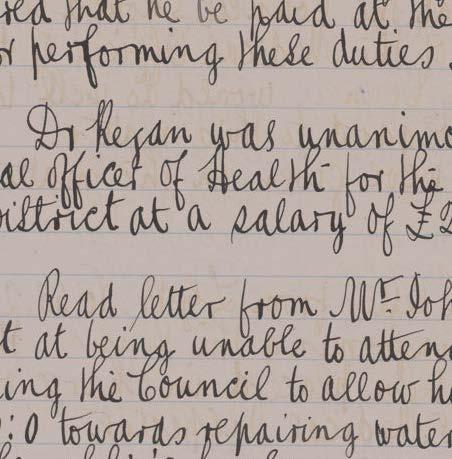 red that he be paid at the
r performing these duties.
Dr Regan was unanimo
al officer of Health for the
istrict at a salary of £2
Read letter from Mr. Joh
t at being unable to atten
ing the Council to allow h
: 0 towards repairing water